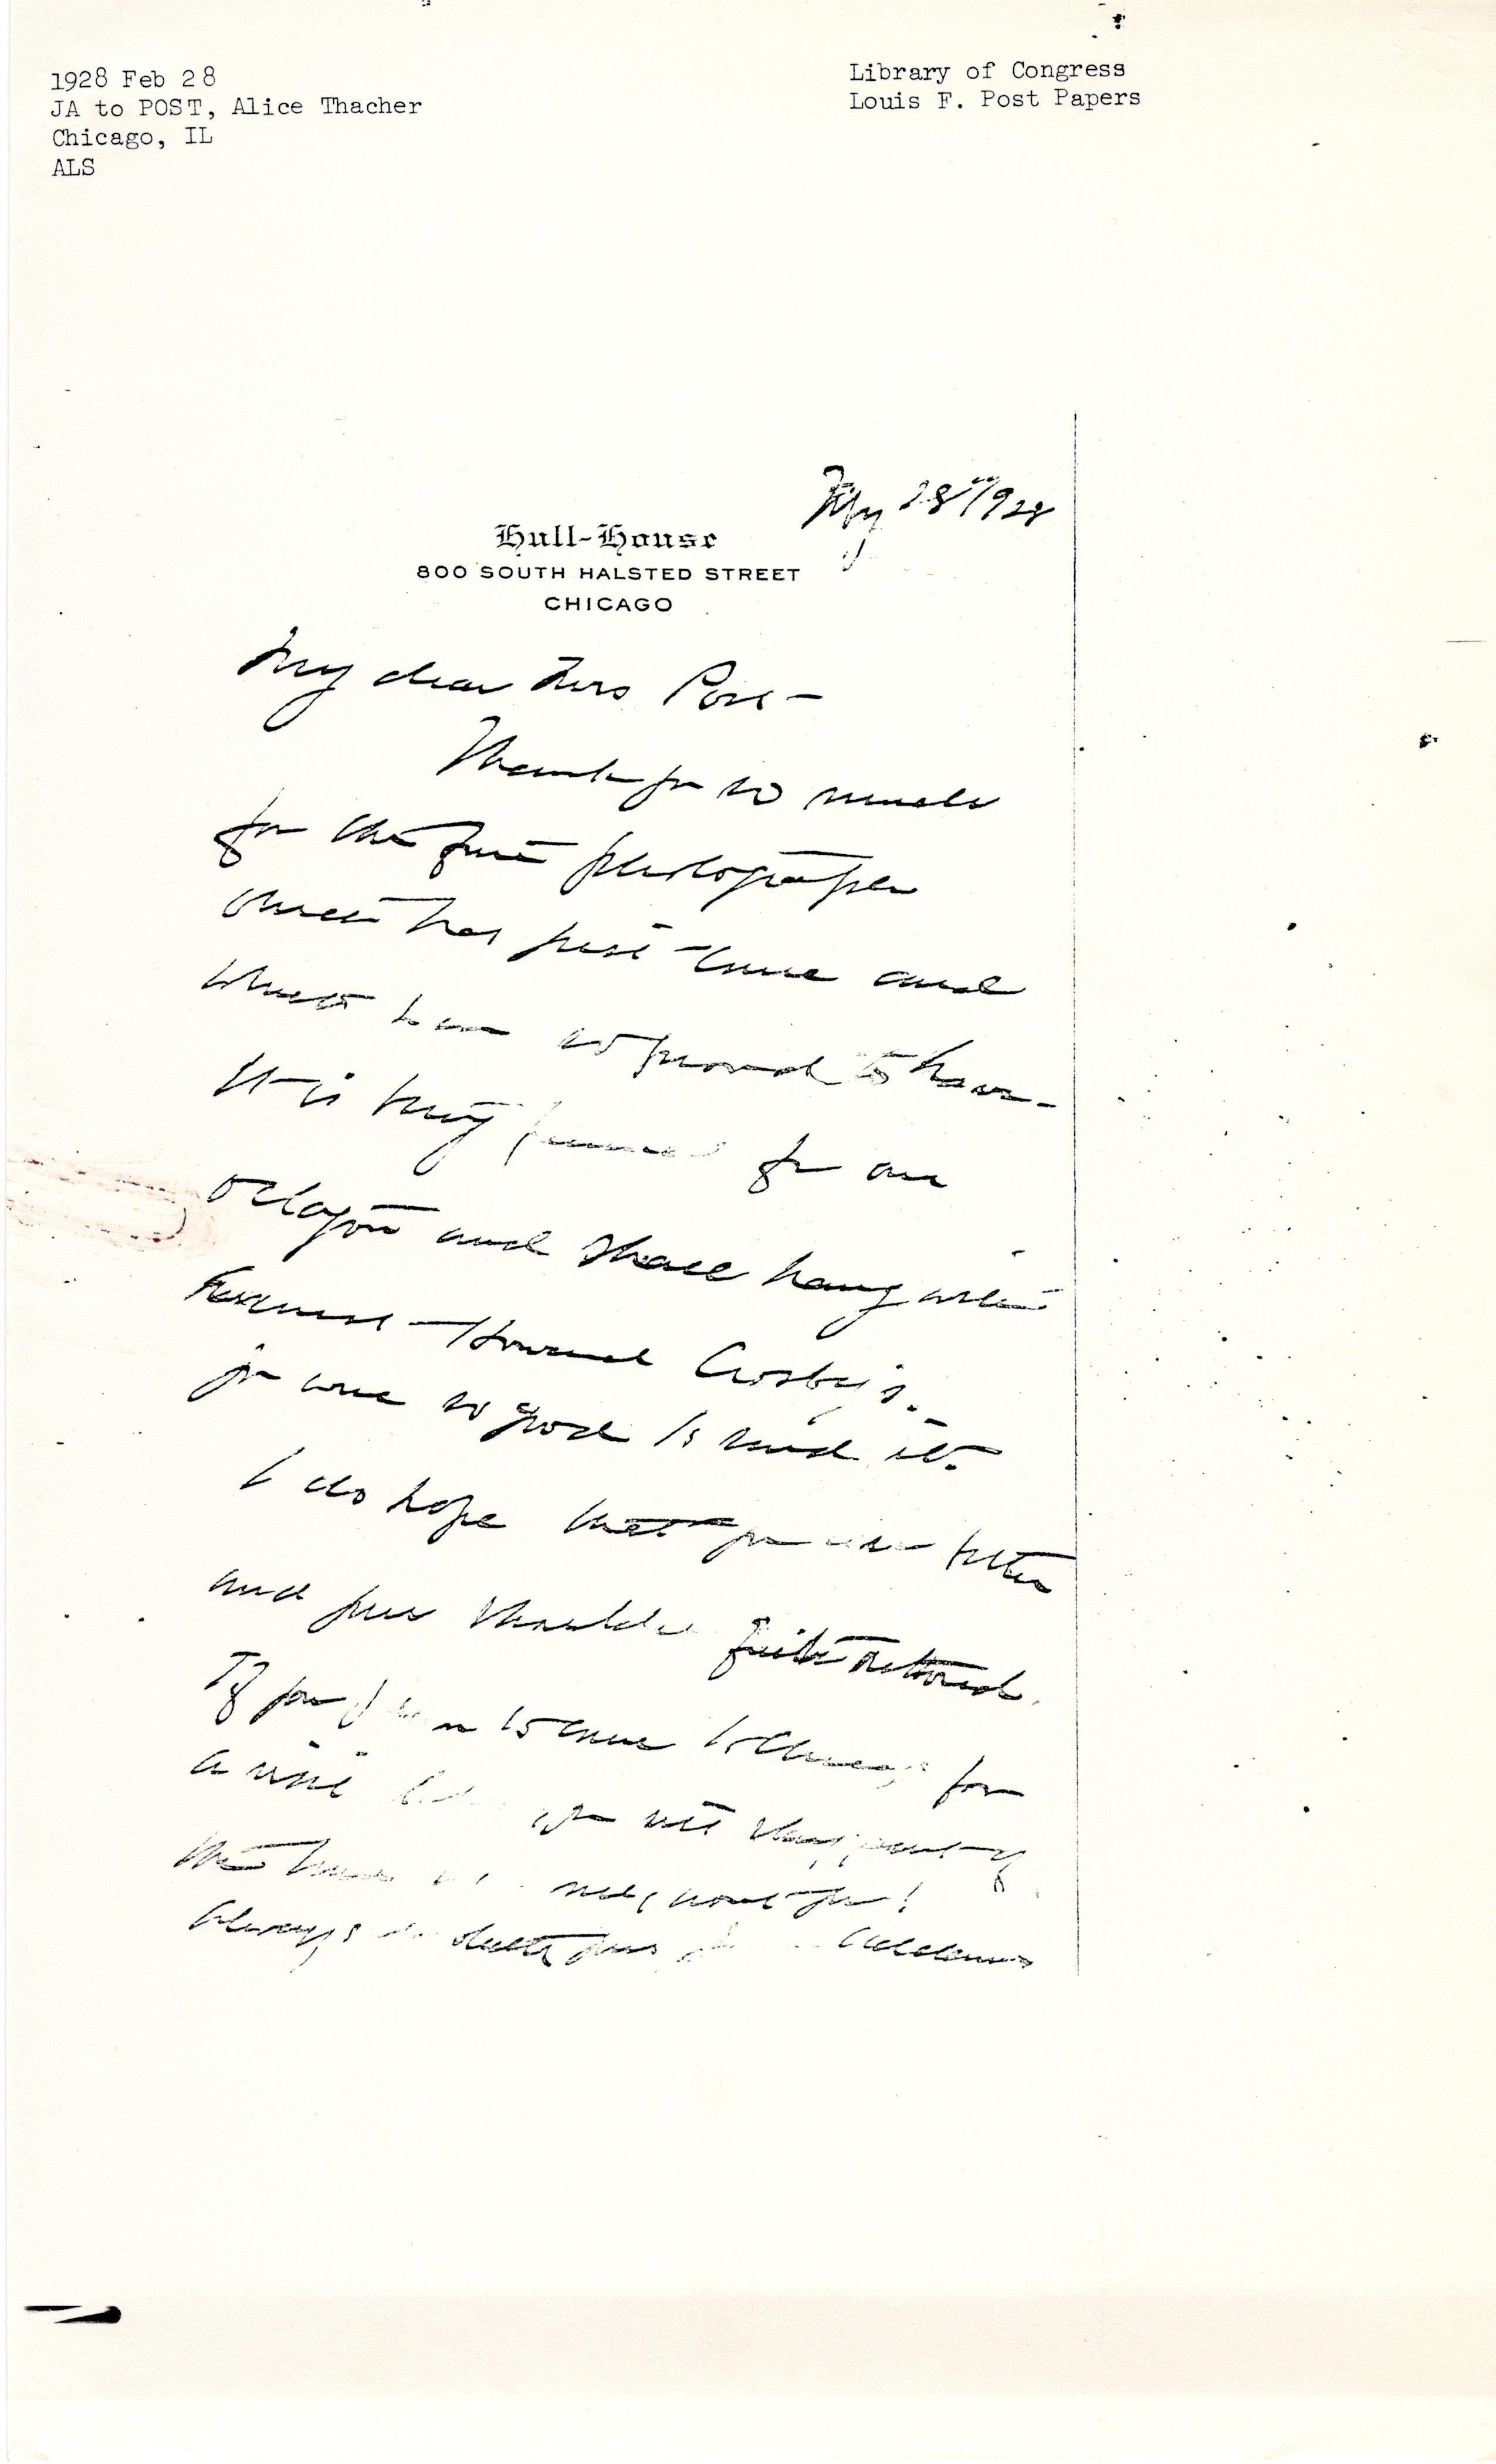 1928 Feb 28
JA to POST, Alice Thacher
Chicago, IL
ALS
Library of Congress
Louis F. Post Papers
Feby 28" 1928
Hull-House
800 SOUTH HALSTED STREET
CHICAGO
My dear Mrs Post –
Thank you so much
for the fine photograph
which has just come and
which I am so proud to have –
It is being framed for our
octagon and shall hang with
Howard Crosby's. –
You were so good to send it.
I do hope that you are better
and your shoulder quite restored.
If you to come to Chicago for
a visit you not stay part of
the time
Always devotedly yours Addams